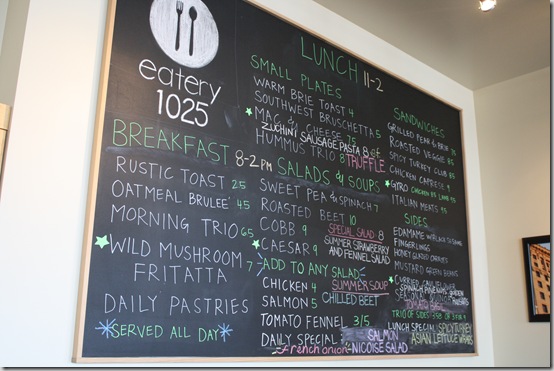 eatery
1025
BREAKFAST 8-2PM
RUSTIC TOAST 25
OATMEAL BRULEE' 45
MORNING TRIO 65
WILD MUSHROOM
FRITATTA 7
DAILY PASTRIES
SERVED ALL DAY
LUNCH 11-2
SMALL PLATES
WARM BRIE TOAST 4
SOUTHWEST BRUSCHETTA 5
MAC & CHEESE 75
ZUCHINI SAUSAGE PASTA 8
HUMMUS TRIO 8 TRUFFLE
SALADS & SOUPS
SWEET PEA & SPINACH 7
ROASTED BEET 10
COBB 9
SPECIAL SALAD 8
CAESAR 9
SUMMER STRAWBERRY
AND FENNEL SALAD
ADD TO ANY SALAD
CHICKEN 4
SUMMER SOUP
SALMON 5
CHILLED BEET
TOMATO FENNEL 3/5
DAILY SPECIAL
french onion
SALMON
NICOISE SALAD
SANDWICHES
GRILLED PEAR & BRIE 75
ROASTED VEGGIE 85
SPICY TURKEY CLUB 85
CHICKEN CAPRESE 9
GYRO CHICKEN 85 LAMB 95
ITALIAN MEATS 95
SIDES
EDAMAME
FINGERLINGS
HONEY GLAZED CARROTS
MUSTARD GREEN BEANS
CURRIED CAULIFLOWER
SPINACH
TOMATO
TRIO OF SIDES
LUNCH SPECIAL
SPICY TURKEY
ASIAN LETTUCE WRAPS